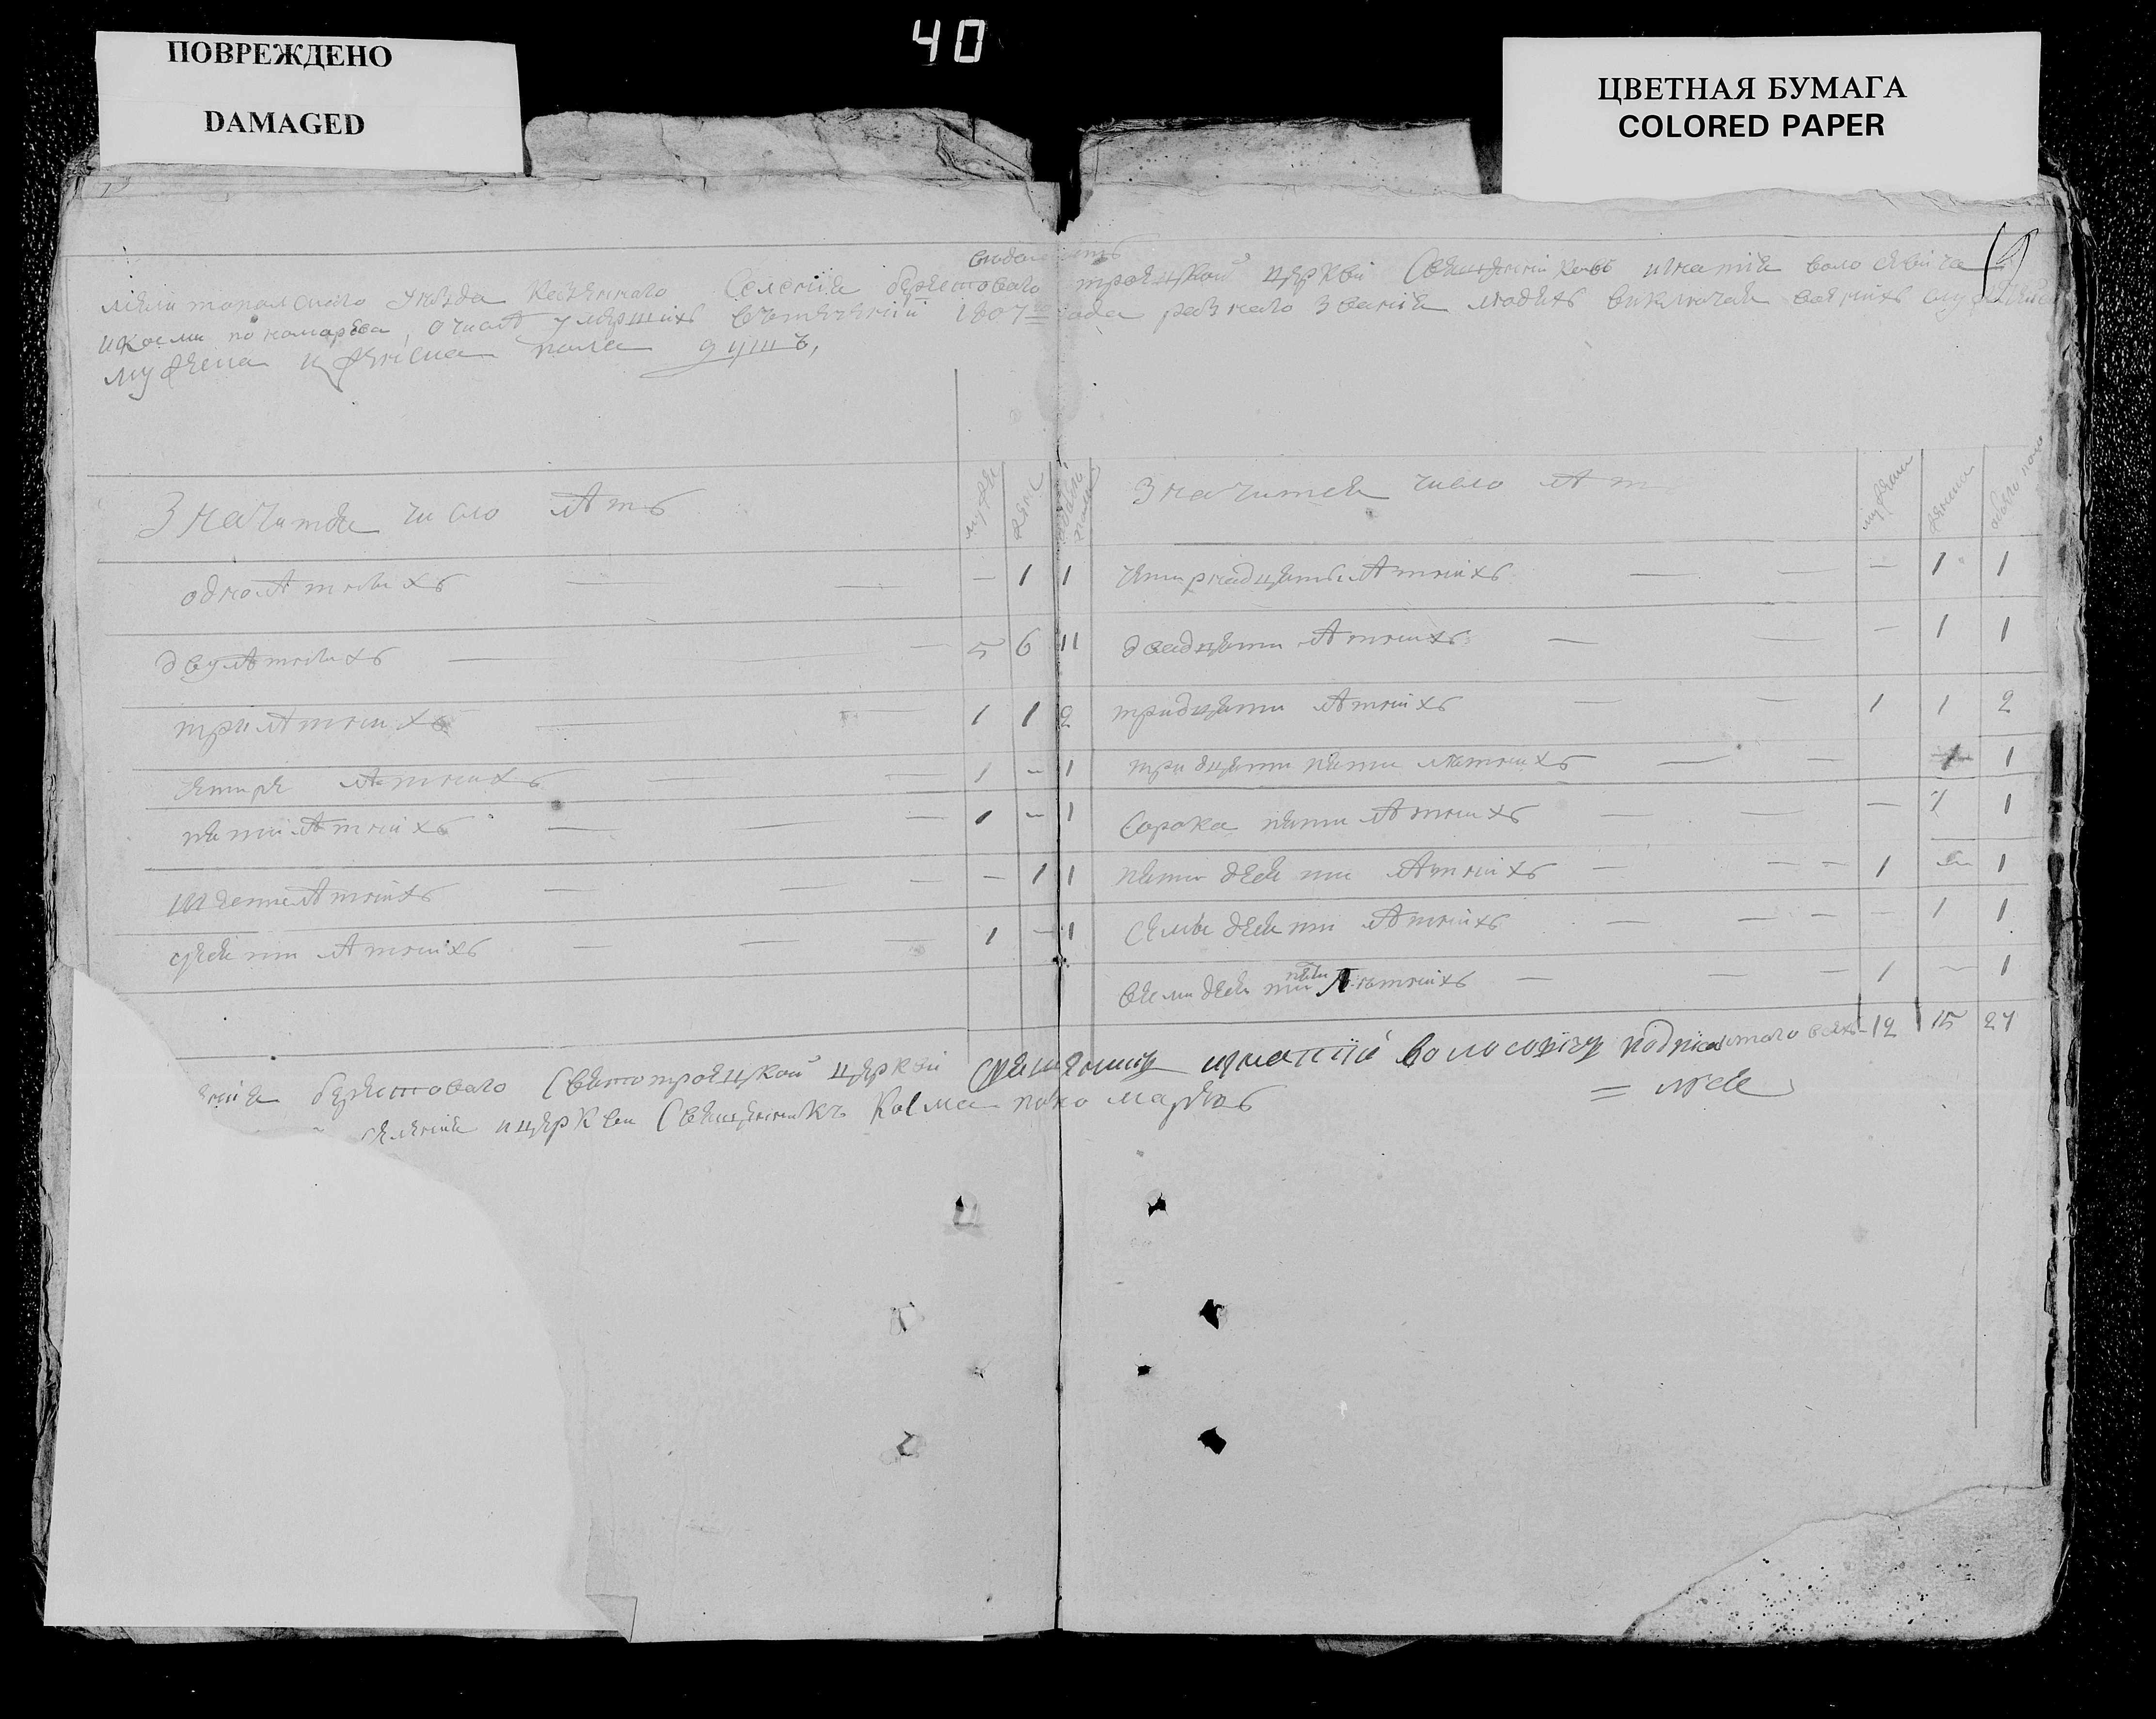 ПОВРЕЖДЕНО
DAMAGED
40
ЦВЕТНАЯ БУМАГА
COLORED PAPER
мелитополскаго уезда казеннаго Селения берестоваго троицкой церкви Священниковъ игнатия
и космы пономарева, о числѣ умерших въ течении 1807 года разнаго звания людех виключая
мужеска и женска пола душъ,
Значится число лѣтъ
муже
женс
обоего пола
однолѣтнихъ — — — 1 1
двулѣтнихъ — — 5 6 11
трилѣтнихъ — — 1 1 2
четире лѣтнихъ — — 1 — 1
пятилѣтнихъ — — — 1 — 1
шестилѣтнихъ — — — — 1 1
десяти лѣтнихъ — — — 1 — 1
Значится число лѣт
мужеска
женска
обоего пола
четирнадцатилѣтнихъ — — — 1 1
двадцати лѣтнихъ — — — 1 1
тридцати лѣтнихъ — — 1 1 2
тридцати пяти лѣтнихъ — — 1 1
Сорока пяти лѣтнихъ — — — 1 1
пятидесяти лѣтнихъ — — — 1 — 1
Семидесяти лѣтнихъ — — — — 1 1
восмидесяти пяти лѣтнихъ — — — 1 — 1
12 15 27
ения берестоваго Святотроицкой церкви Священникъ игнатий
селения и церкви Священникъ Косма пономаревъ